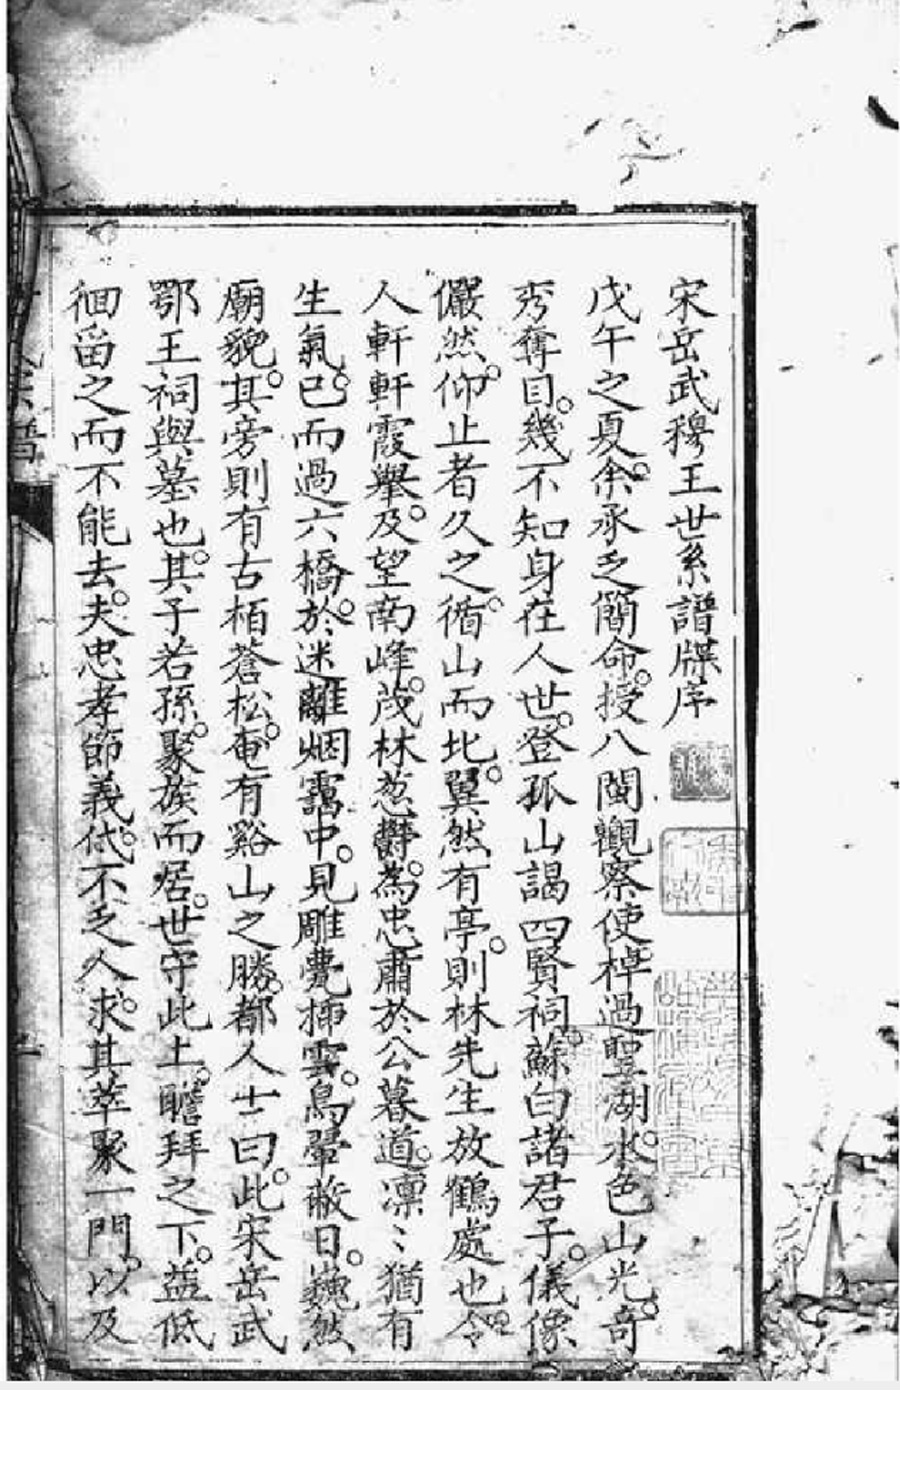 宋岳武穆王世系譜牒序
戊午之夏。余承乏簡命。授八閩觀察使。棹過聖湖。水色山光。奇
秀奪目。幾不知身在人世。登孤山謁四賢祠。蘇白諸君子。儀像
儼然。仰止者久之。循山而北。翼然有亭。則林先生放鶴處也。令
人軒軒霞舉。及望南峰。茂林葱欝。為忠肅於公墓道。凛〻猶有
生氣。已而過六橋。於迷離烟靄中。見雕甍插雲。鳥翬蔽日。巍然
廟貌。其旁則有古栢蒼松。奄有谿山之勝。都人士曰。此宋岳武
鄂王祠與墓也。其子若孫。聚族而居。世守此土。瞻拜之下。益低
徊畱之而不能去。夫忠孝節義。代不乏人。求其萃聚一門。以及